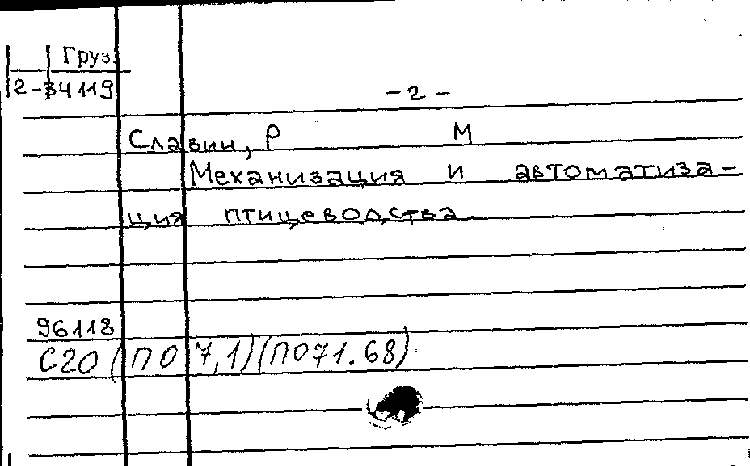 Груз.
2-34119
-2-
Славин, Р М
Механизация и автоматиза-
ция птицеводства
96118
С20 (П07,1)(П071.68)